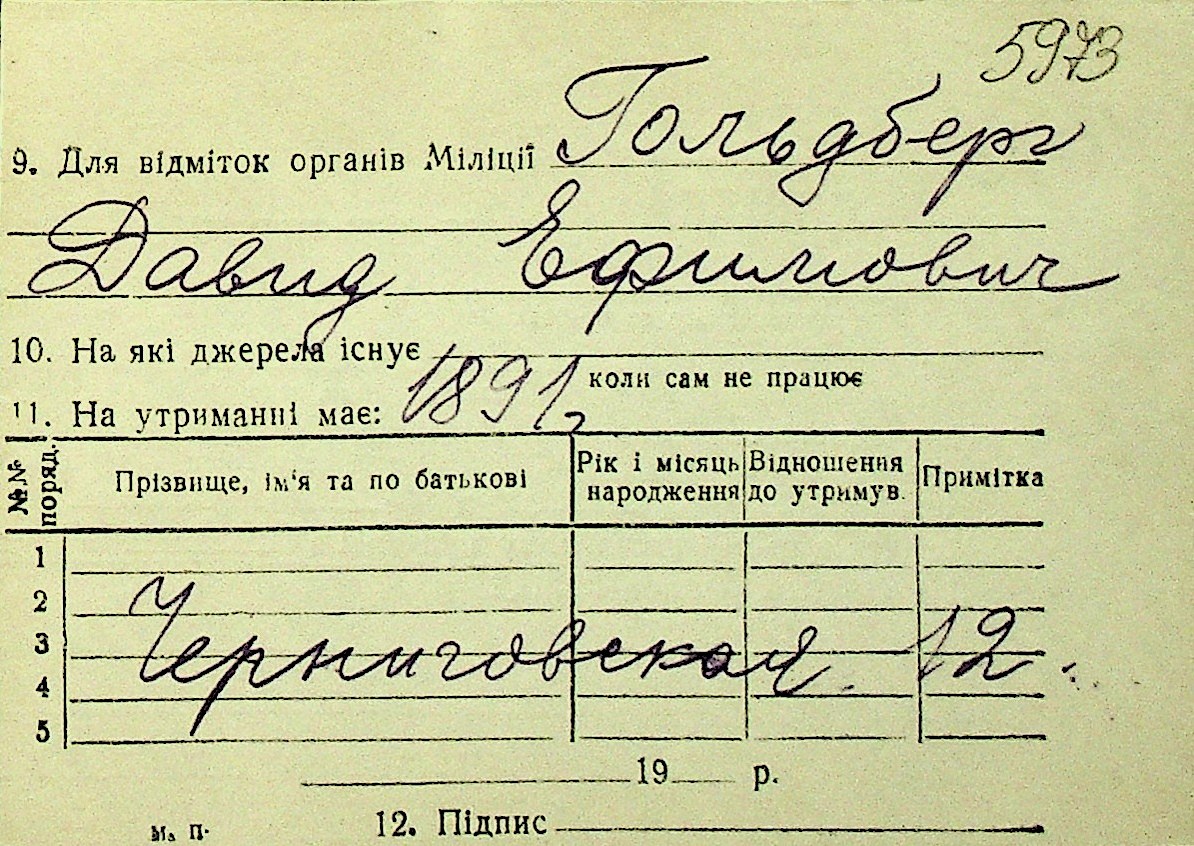 5973
9. Для відміток органів Міліції Гольдберг
Давид Ефимович
10. На які джерела існує
коли сам не працює
11. На утриманні має: 1891,
№№ поряд.
Прізвище, ім'я та по батькові
Рік і місяць народження
Відношення до утримув.
Примітка
1
2
3
Черниговская. 12.
4
5
19 р.
М. П.
12. Підпис